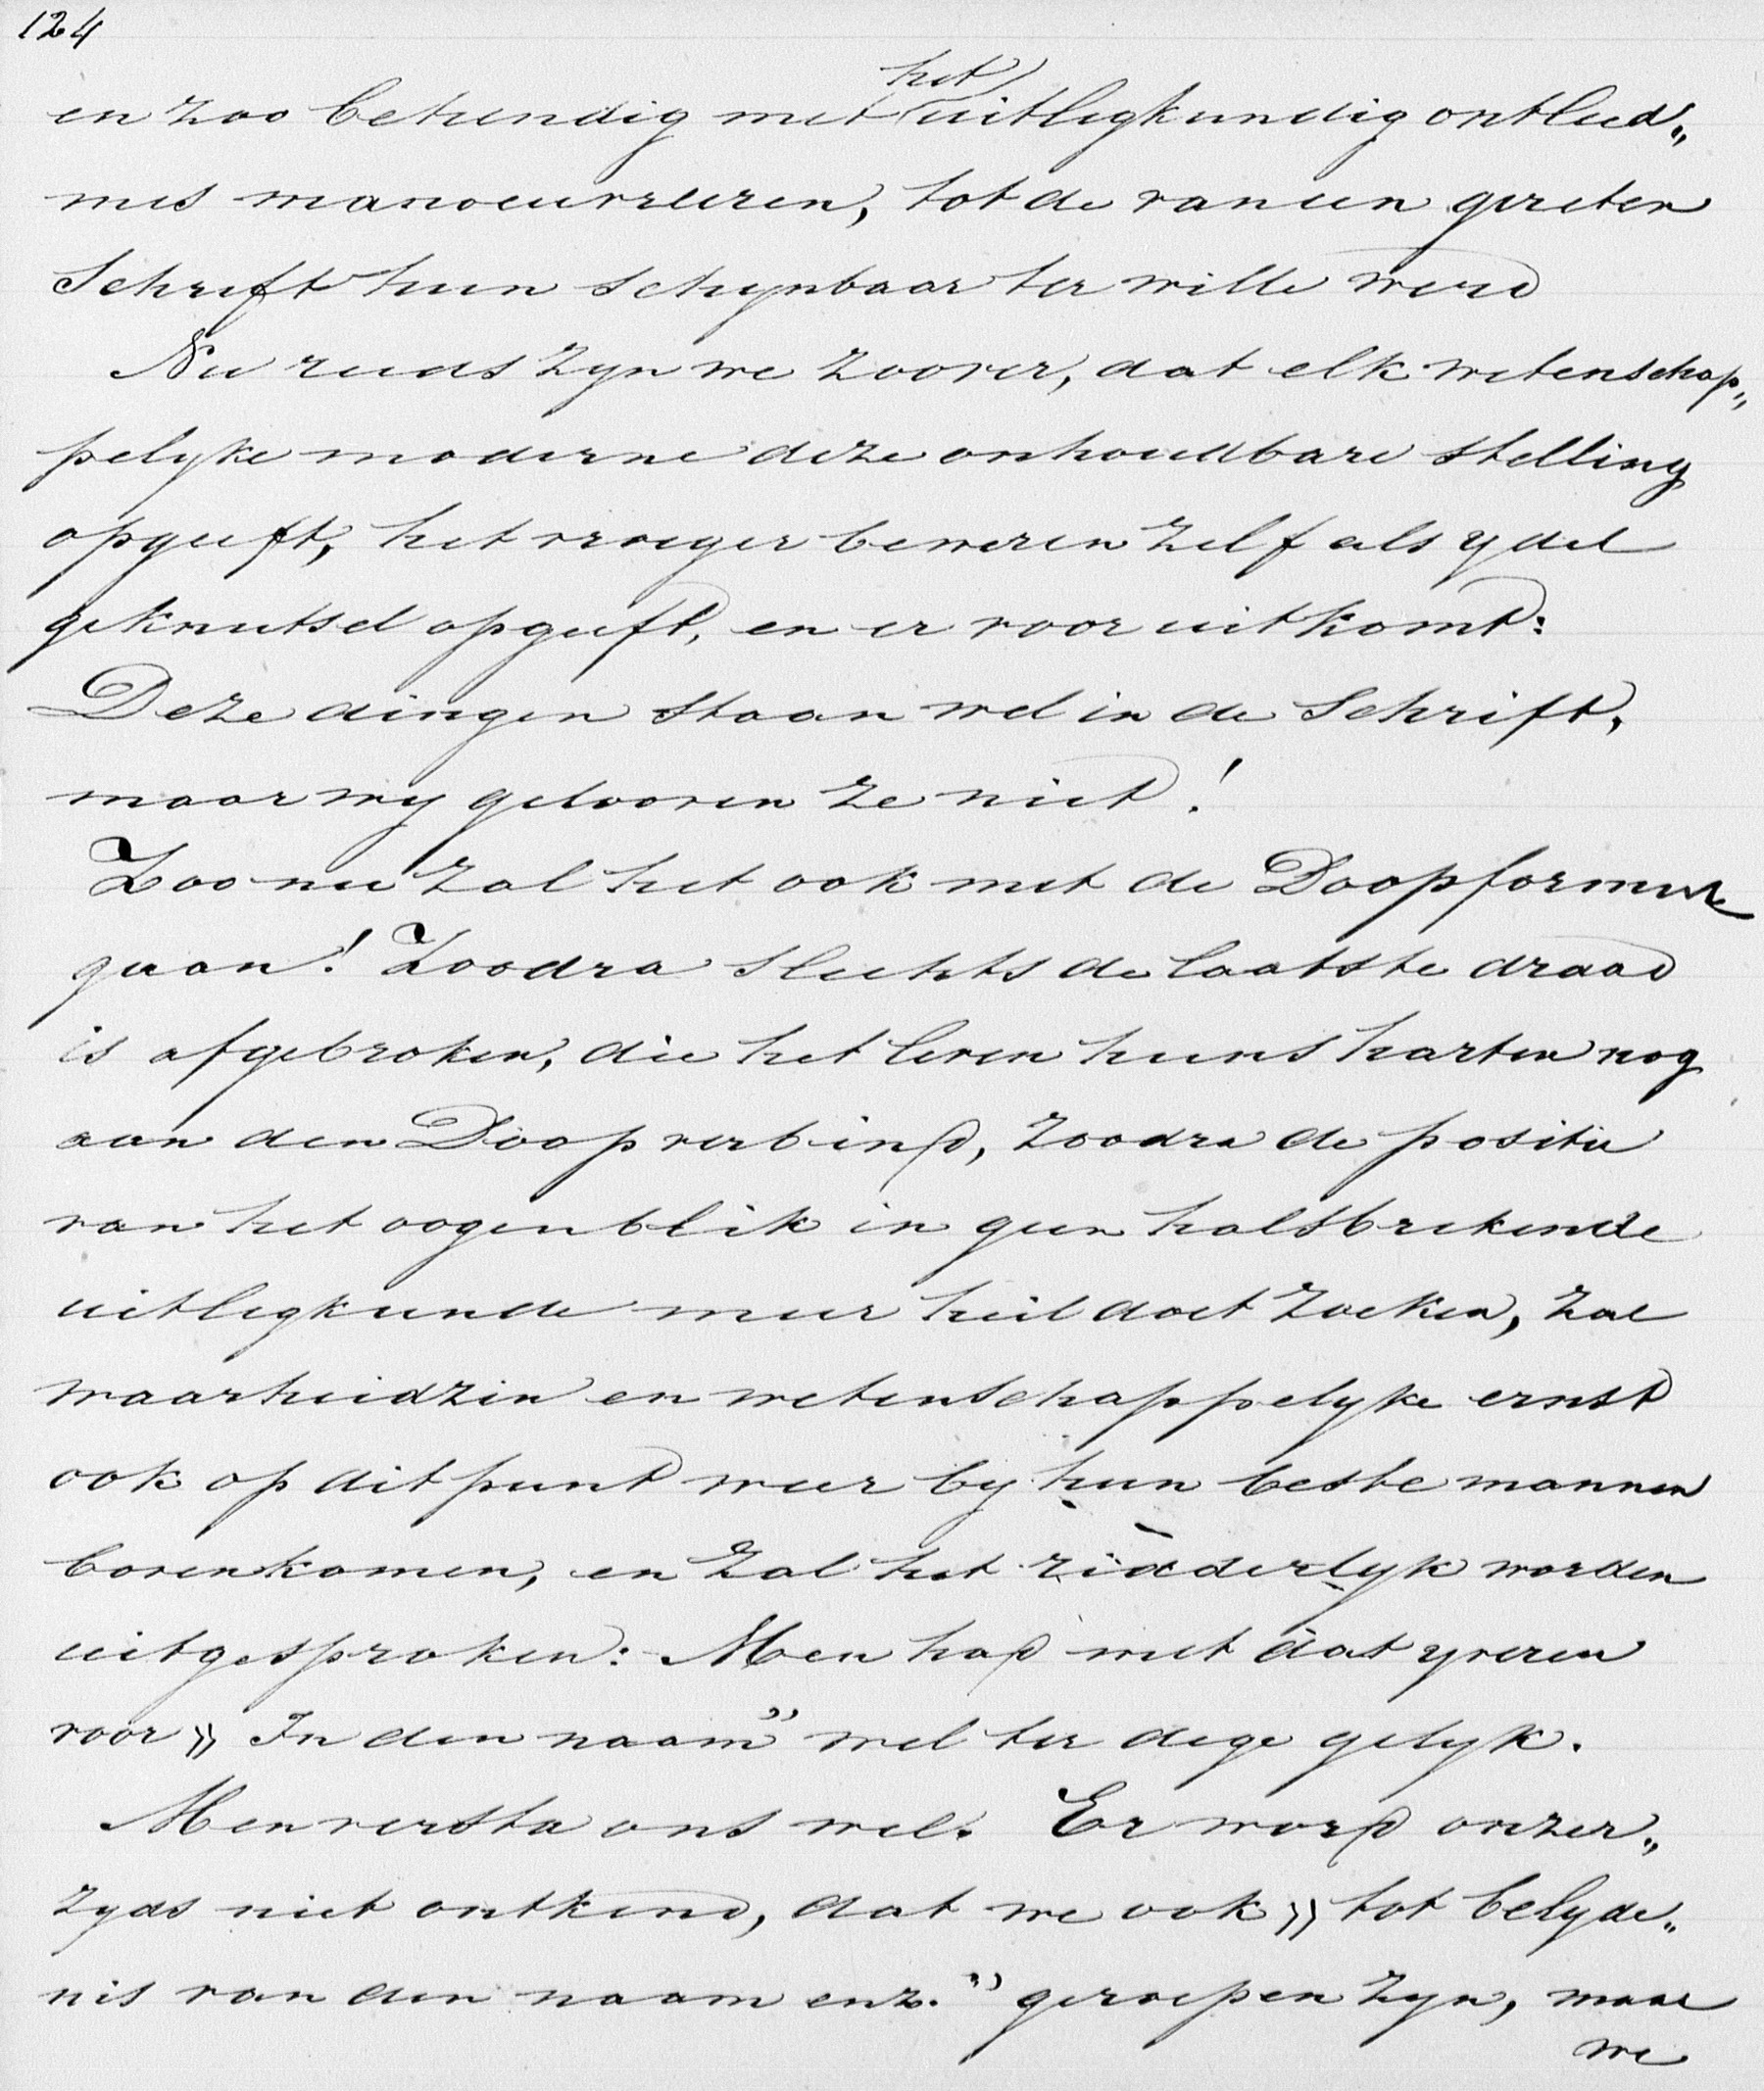 124
en zoo behendig met het uitlegkundig ontleed„
mes manoeuvreeren, tot de vaneen gereten
Schrift hun schynbaar ter wille werd
Nu reeds zyn we zoover, dat elk wetenschap„
pelyke moderne deze onhoudbare stelling
opgeeft, het vroeger beweren zelf als ydel
geknutsel opgeeft, en er voor uitkomt:
Deze dingen staan wel in de Schrift,
maar wy gelooven ze niet!
Zoo nu zal het ook met de Doopformule
gaan! Zoodra slechts de laatste draad
is afgebroken, die het leven huns harten nog
aan den Doop verbind, zoodra de positie
van het oogenblik in geen halsbrekende
uitlegkunde meer heil doet zoeken, zal
waarheidzin en wetenschappelyke ernst
ook op dit punt weer by hun beste mannen
bovenkomen, en zal het ridderlyk worden
uitgesproken: Men had met dat yveren
voor „In den naam” wel ter dege gelyk.
Men versta ons wel. Er word onzer„
zyds niet ontkend, dat we ook „tot belyde„
nis van den naam enz.” geroepen zyn, maar
we